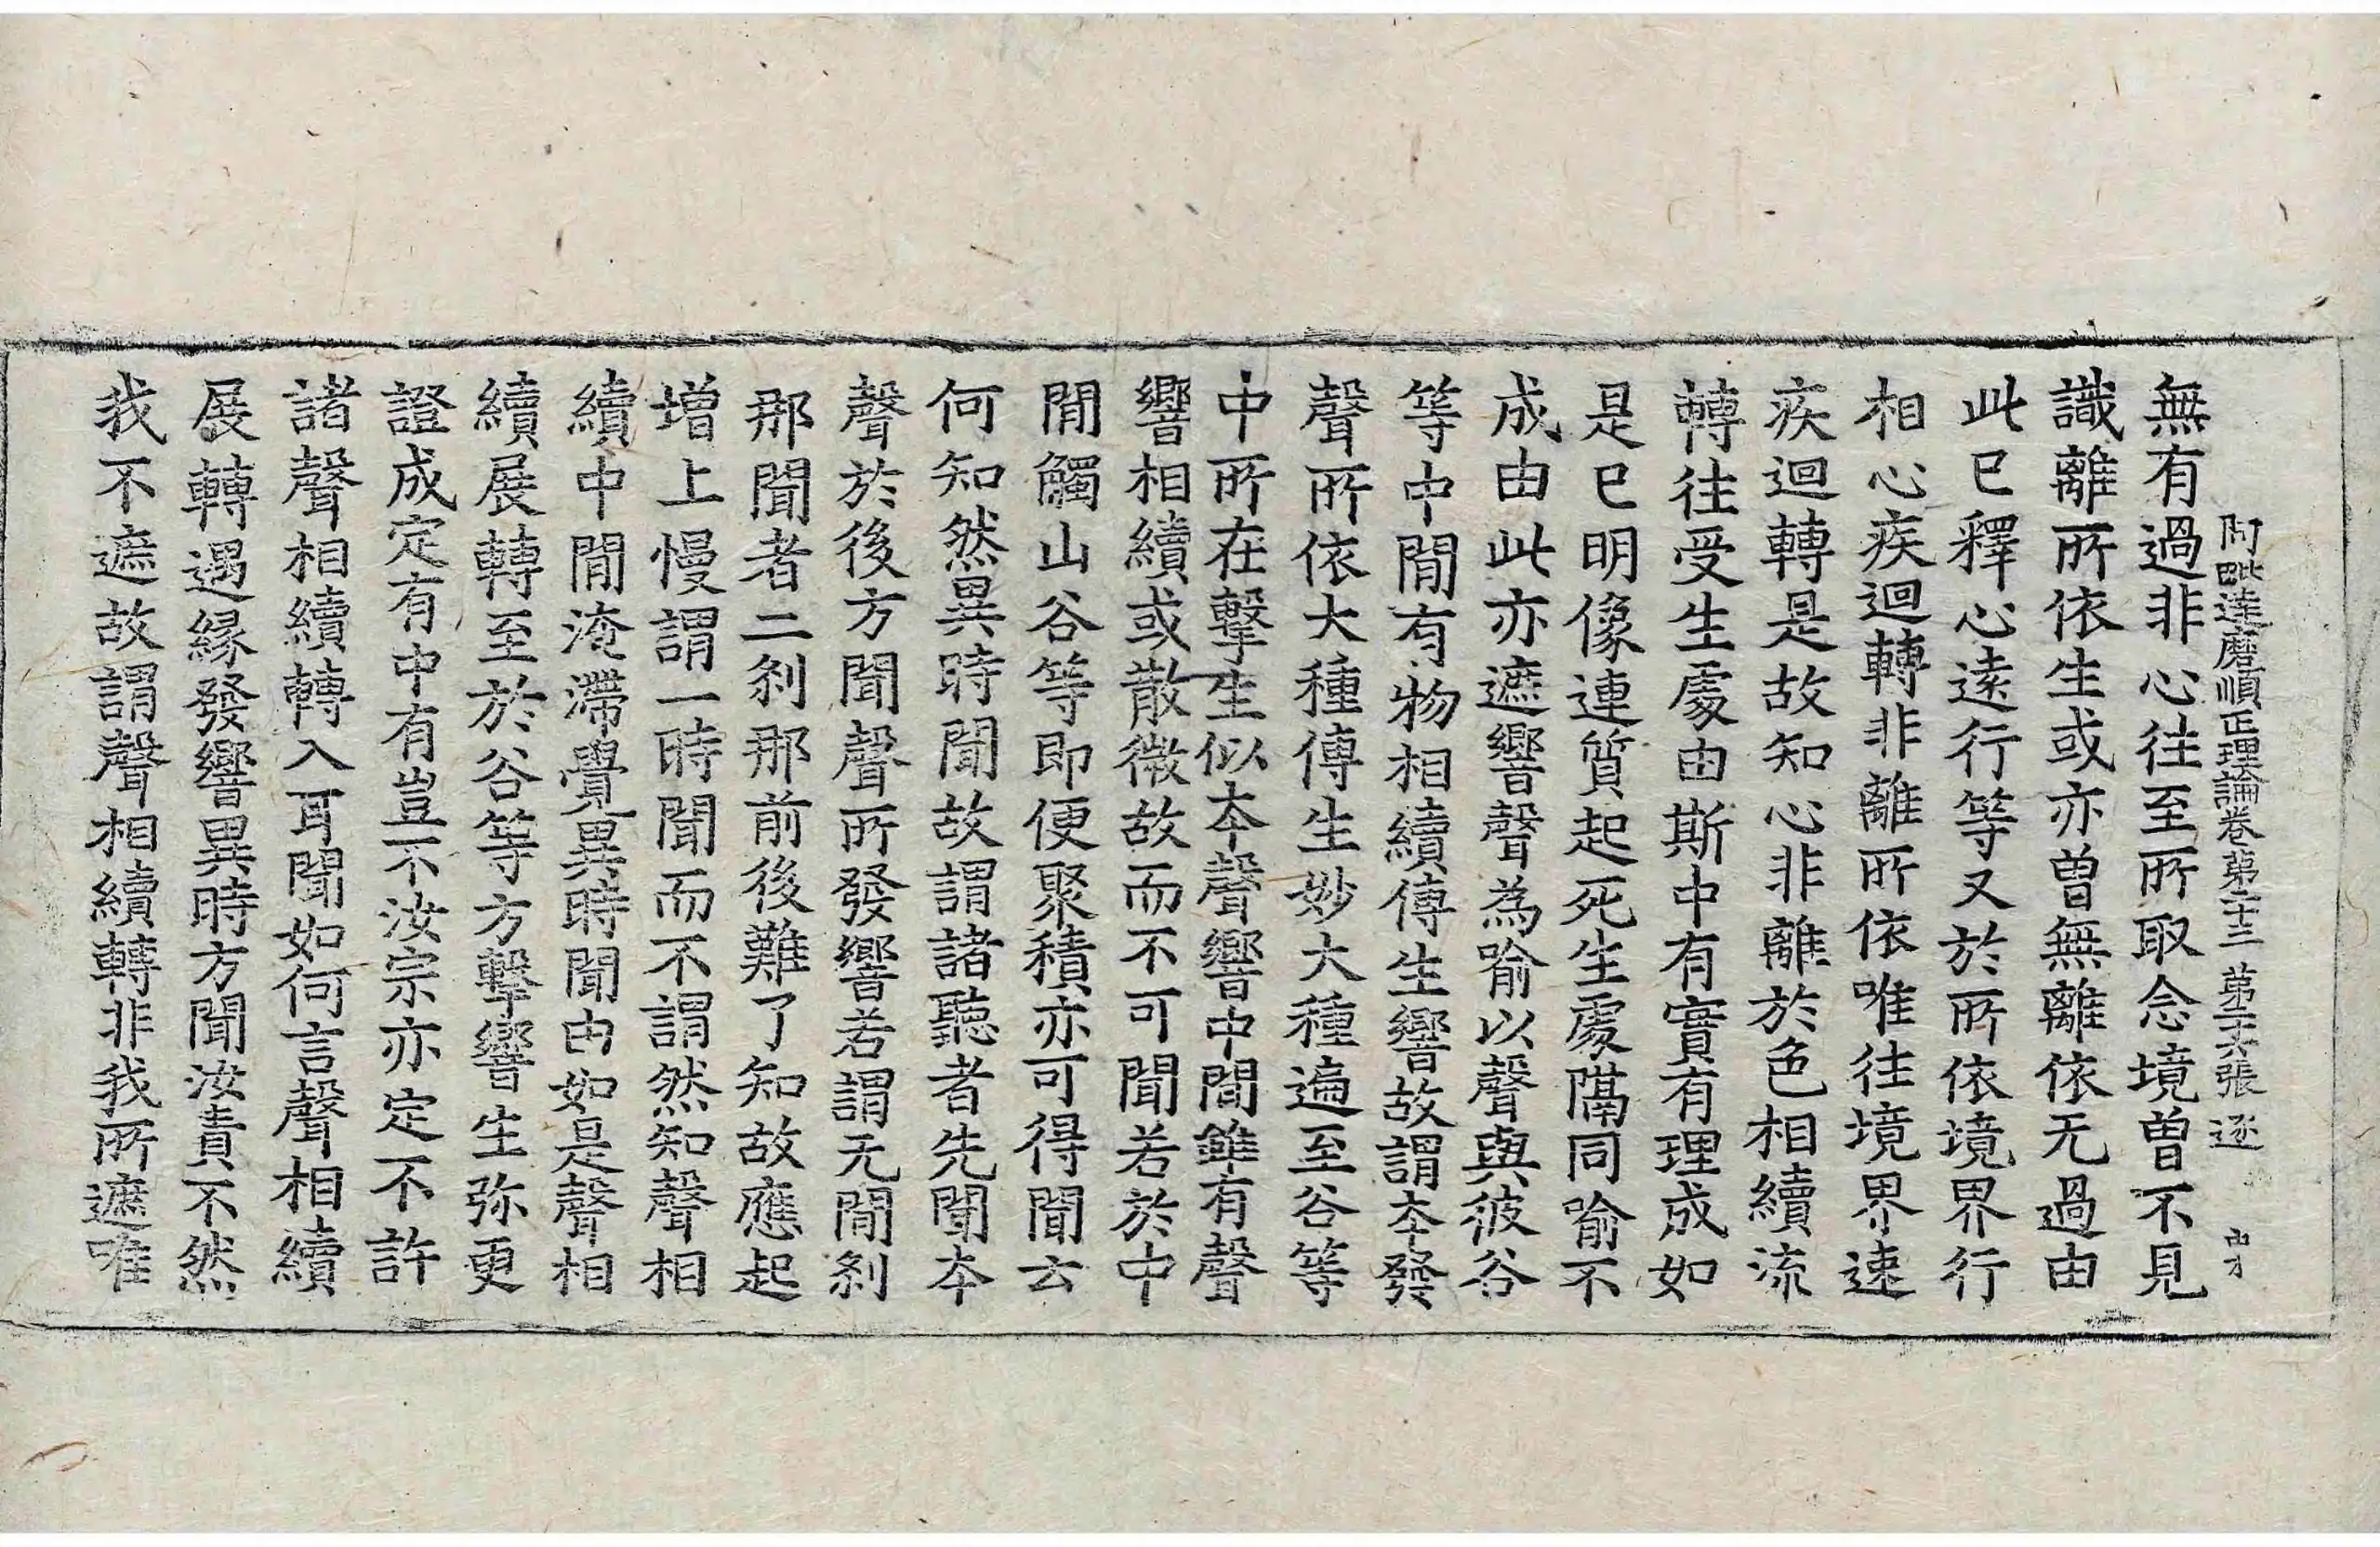 阿毗達磨順正理論卷第二十三 第十六張 逐 由才
無有過非心往至所取念境曽不見
識離所依生或亦曽無離依无過由
此已釋心遠行等又於所依境界行
相心疾迴轉非離所依唯往境界速
疾迴轉是故知心非離於色相續流
轉往受生處由斯中有實有理成如
是已明像連質起死生處隔同喻不
成由此亦遮響聲為喻以聲與彼谷
等中間有物相續傳生響故謂夲發
聲所依大種傳生妙大種遍至谷等
中所在擊生似夲聲響中間雖有聲
響相續或散微故而不可聞若於中
間觸山谷等即便聚積亦可得聞云
何知然異時聞故謂諸聽者先聞夲
聲於後方聞聲所發響若謂无間剎
那聞者二剎那前後難了知故應起
增上慢謂一時聞而不謂然知聲相
續中間淹滯覺異時聞由如是聲相
續展轉至於谷等方擊響生弥更
證成定有中有豈不汝宗亦定不許
諸聲相續轉入耳聞如何言聲相續
展轉遇縁發響異時方聞汝責不然
我不遮故謂聲相續轉非我所遮唯